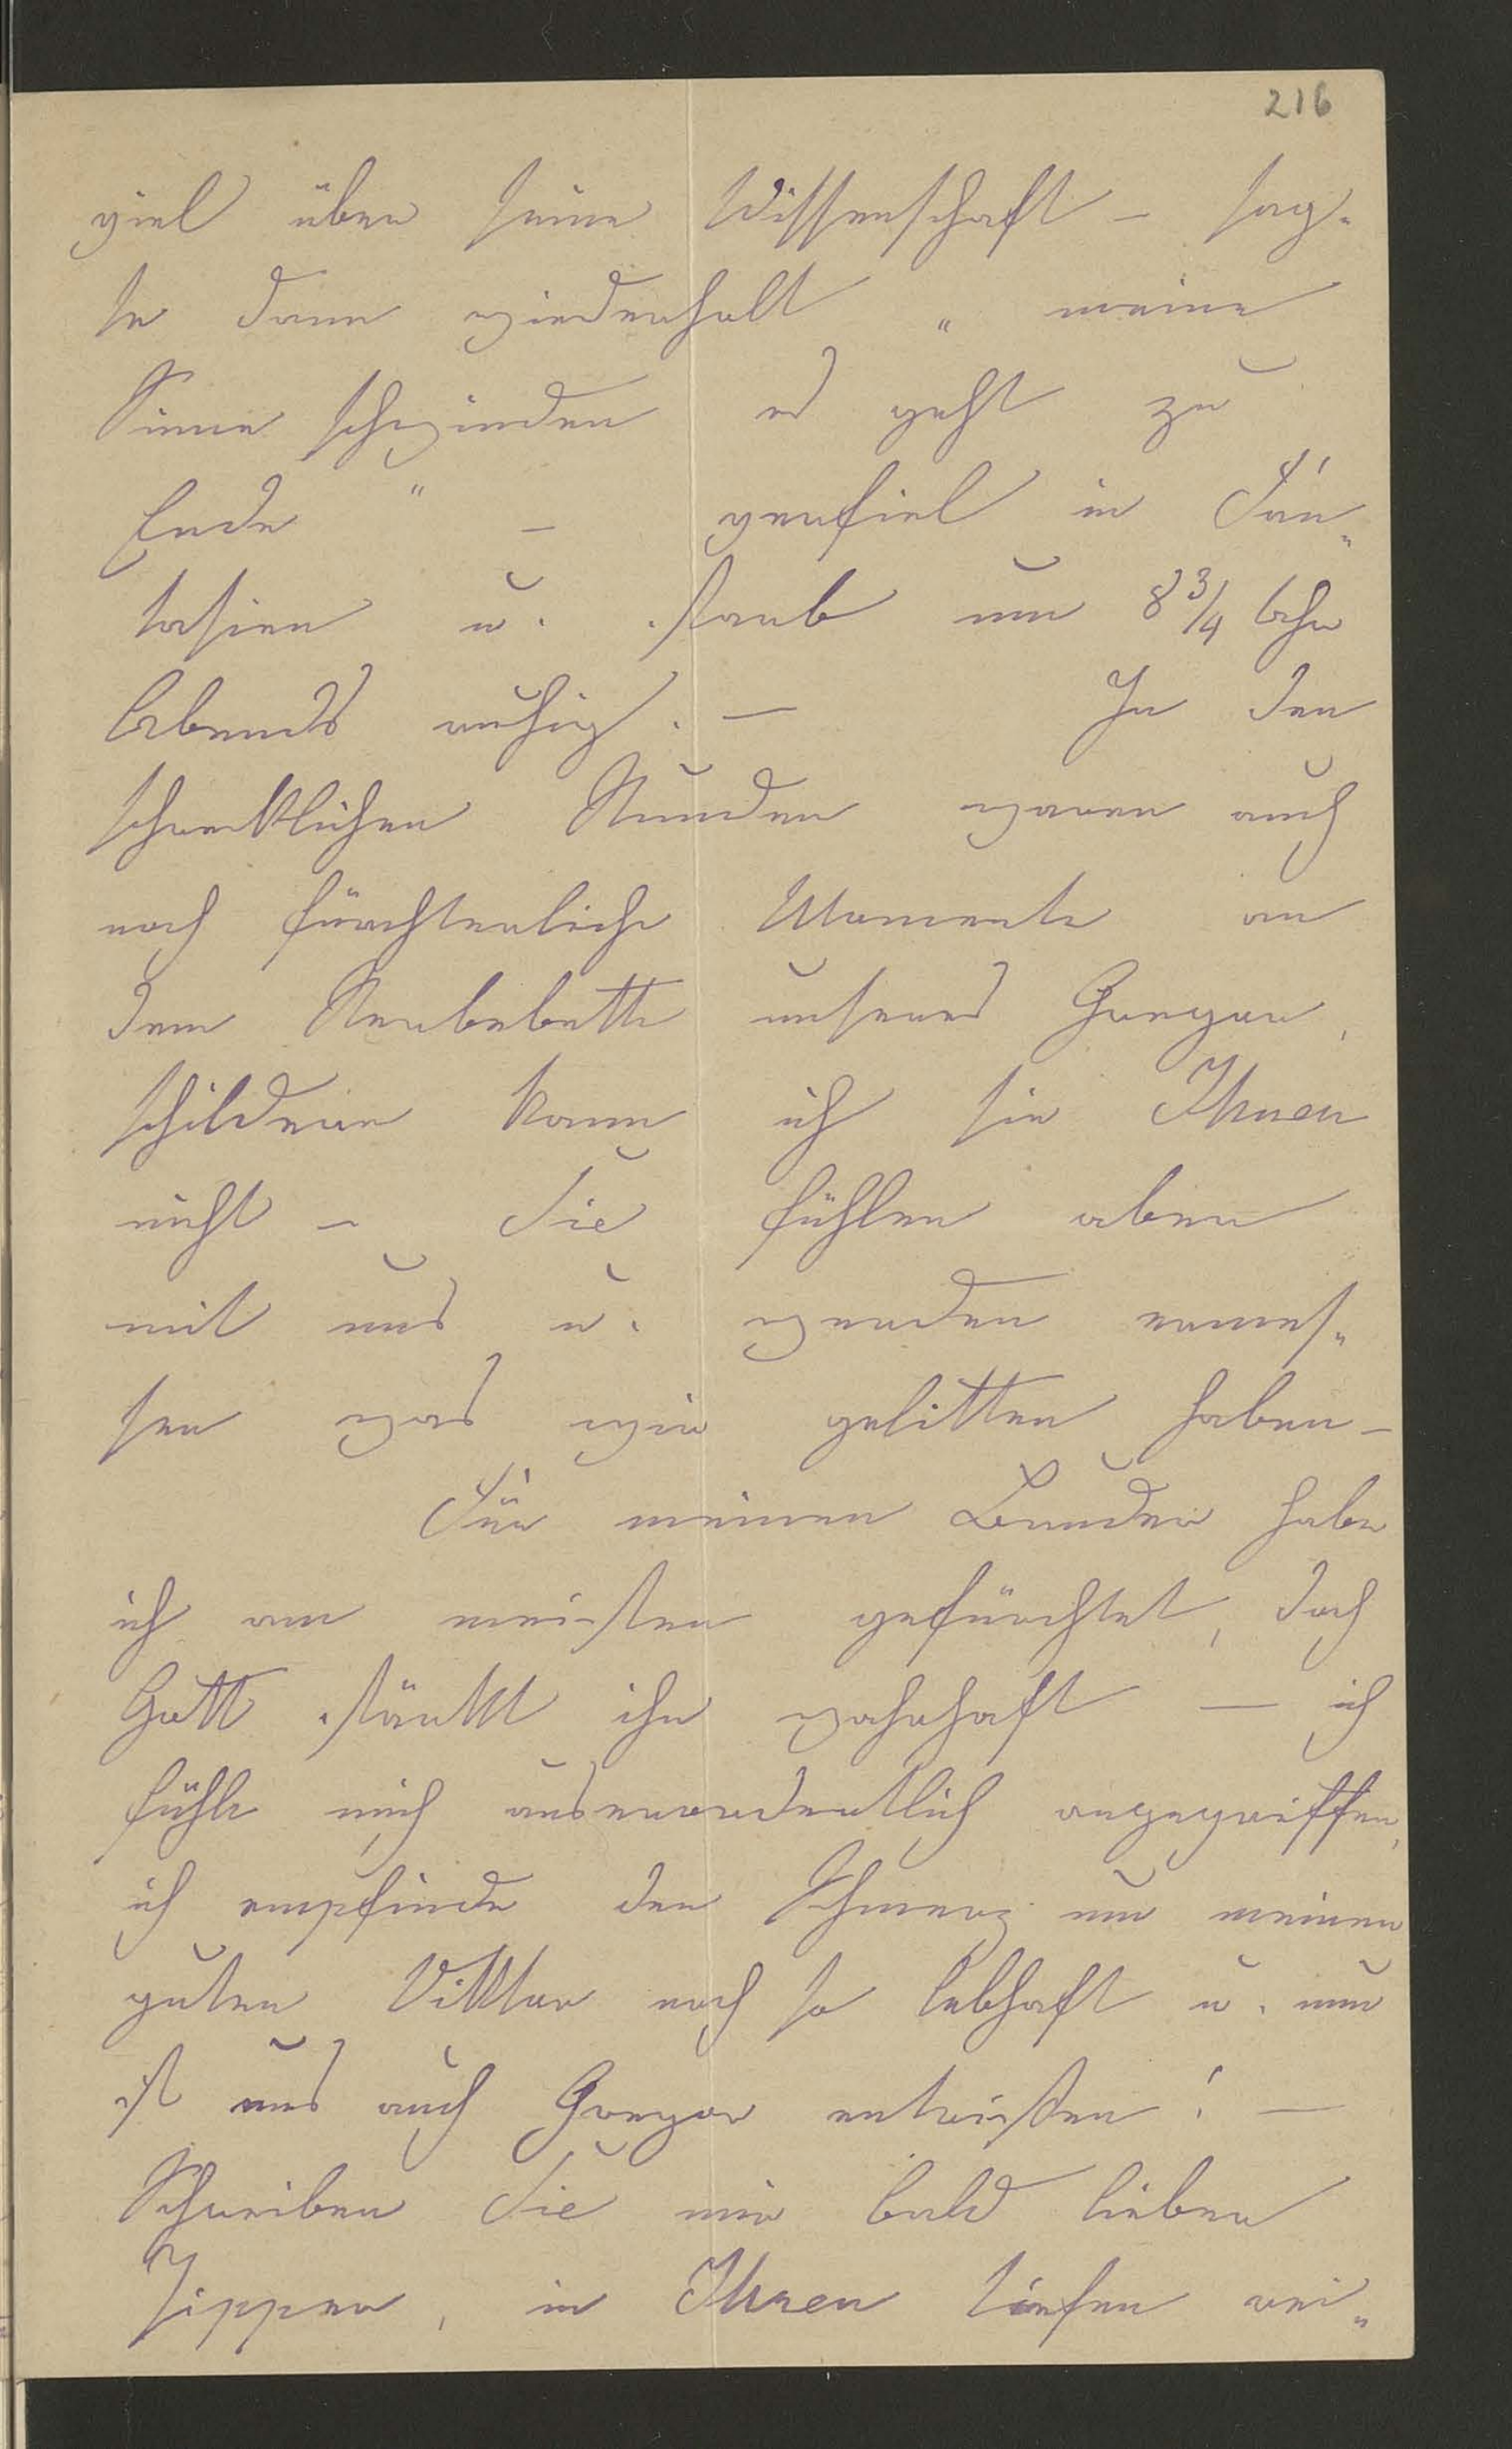 216
viel über seine Wissenschaft – sag-
te dann wiederholt „ meine
Sinne schwinden es geht zu
Ende " – verfiel in Fan-
tasien u. starb um 8 3/4 Uhr
Abends ruhig. – In den
schrecklichen Stunden waren auch
noch fürchterliche Momente an
dem Sterbebette unseres Gregor,
schildern kann ich sie Ihnen
nicht – Sie fühlen aber
mit uns u. werden ermes-
sen was wir gelitten haben –
Für meinen Bruder habe
ich am meisten gefürchtet, doch
Gott stärkt ihn wahrhaft – ich
fühle mich ausserordentlich angegriffen,
ich empfinde den Schmerz um meinen
guten Viktor noch so lebhaft u. nun
ist uns auch Gregor entrissen! –
Schreiben Sie mir bald lieber
in Ihren tiefen rei-